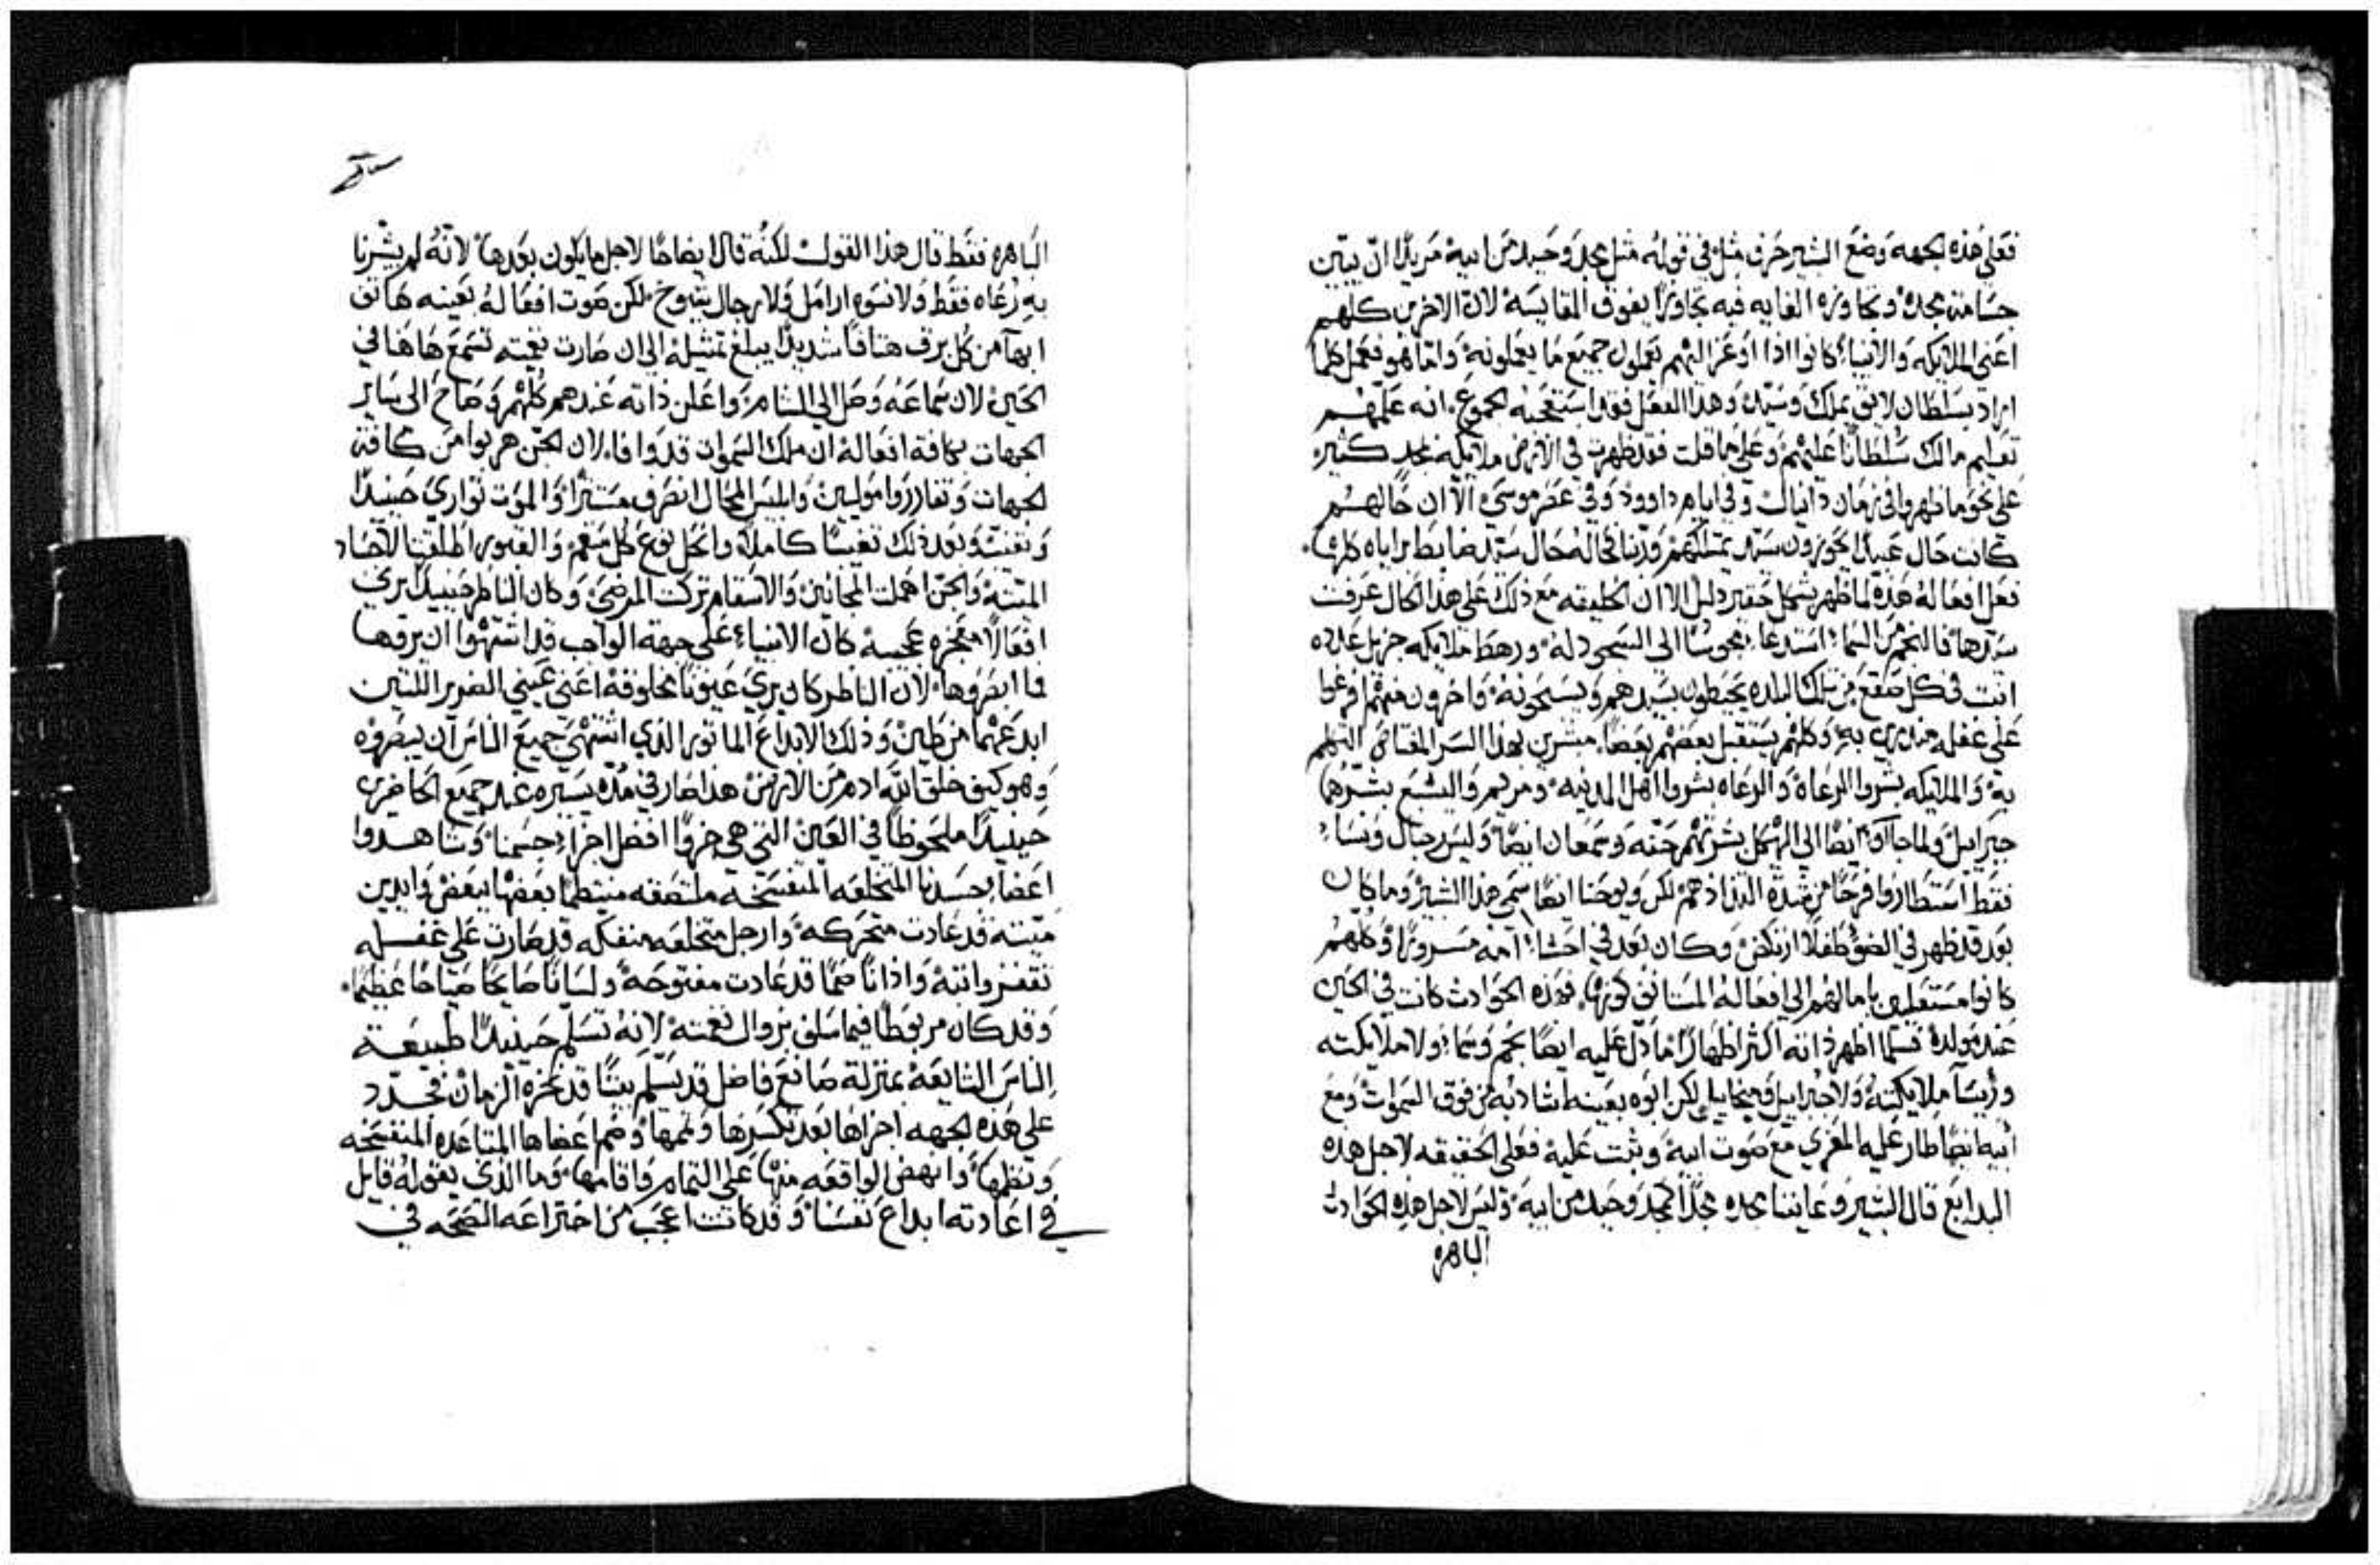 فعلى هذه الجهه وضع البشير حرف مثل في قوله مثل مجد وحيد من ابيه مريدًا ان يبين
جسامة مجده وتجاوزه الغايه فيه تجاوزًا يفوق المقايسه لان الاخرين كلهم
اعني الملايكه والانبياء كانوا اذا اوعز اليهم يعملون جميع ما يعملونه واما هو فعمل كلما
اراد بسلطان لايق بملك وسيد وهذا الفعل فقد استعجبه الجموع انه علمهم
تعليم مالك سلطانًا عليهم وعلى ما قلت فقد ظهرت في الارض ملايكه بمجد كثير
على نحو ما ظهروا في زمان دانيال وفي ايام داوود وفي عصر موسى الا ان حالهم
كانت حال عبيد يحوزون سيد يمتلكهم وربنا فحاله حال سيد ضابط براياه كلها
فعل افعاله هذه لما ظهر بشكل حقير دليل الا ان الخليقه مع ذلك على هذا الحال عرفت
سيدها فالنجم من السماء استدعا مجوسًا الى السجود له ورهط ملايكه جزيل عدده
انت في كل صقع من تلك البلده يحيطون بسيدهم ويسبحونه واخرون منهم فرعوا
على غفله وكلهم يستقبل بعضهم بعضا مبشرين بهذا السر المقتاض التكلم
به والملايكه بشروا الرعاة والرعاه بشروا اهل المدينه ومريم واليشبع بشرهما
جبراييل ولما جا ايضًا الى الهيكل بشرتهم حنه وسمعان ايضًا وليس رجال ونساء
فقط استطاروا فرحًا من شدة التذاذهم لكن ويوحنا ايضًا سمي هذا البشير وما كان
بعد قد ظهر في الضؤ طفلاً ارتكض وكان بعد في احشاء امه مسرورًا وكلهم
كانوا مستعلين بامالهم الى افعاله المستانف كونها فهذه الحوادث كانت في الحين
عند مولده فلما اظهر ذاته اكثر اظهارًا ما دل عليه ايضًا نجم وسماء ولا ملايكته
وريسآ ملايكته ولا جبراييل وميخاييل لكن ابوه بعينه اشاد به من فوق السموات ومع
ابيه ايضًا طار عليه المعزي مع صوت ابيه وثبت عليه فعلى الحقيقه لاجل هذه
البدايع قال البشير وعاينا مجده مجدًا كمجد وحيد من ابيه وليس لاجل هذه الحوادث
الباهره
الباهره فقط قال هذا القول لكنه قال ايضاحًا لاجل ما يكون بعدها لانه لم يبشرنا
به رعاه فقط ولا نسوه ارامل ولا رجال شيوخ لكن صوت افعاله بعينه هاتف
ابها من كل برق هتافًا شديدًا يبلغ تمثيله الى ان صارت نغمته تسمع هاهنا في
الحين لان سماعه وصل الى الشام واعلن ذاته عندهم كلهم وصاح الى ساير
الجهات بكافة افعاله ان ملك السموات قد وافا لان الجن هربوا من كافة
الجهات وتفارزوا مولين وابليس المحال انصرف مستترًا والموت توارى حينيدًا
وبعد ذلك كاملاً وانحل نوع كل سقم والقبور اطلقت الاجساد
الميته والجن اهملت المجانين والاسقام تركت المرضى وكان الناظر حينيد يرى
افعالاً معجزه عجيبه كان الانبياء على جهة الواجب قد اشتهوا ان يروها
فما ابصروها لان الناظر كان يرى عيونًا مخلوقة اعني عيني الضرير اللتين
ابدعهما من طين وذلك الابداع الماثور الذي اشتهى جميع الناس ان يبصروه
وهو كيف خلق الله ادم من الارض هذا صار في مده يسيره عند جميع الحاضرين
حينيدًا ملحوظًا في العين التي هي جزوًا افضل اجزاء جسمنا وشاهدوا
اعضا جسدنا المتخلعه المتفسخه ملتصقه منتظمًا بعضها ببعض وايدين
ميته قد عادت متحركه وارجل متخلعه منفكه قد صارت على غفله
تقفز واثبة واذانًا صمًا قد عادت مفتوحة ولسانًا صايحًا صياحًا عظيمًا
وقد كان مربوطًا فيما سلف بزوال نغمته لانه تسلم حينيدًا طبيعة
الناس الشايعه بمنزلة صانع فاضل قد تسلم بيتًا قد نخزه الزمان فجدد
على هذه الجهه اجزاها بعد تكسرها وتممها وضم اعضاها المتباعده المتفسخه
ونظمها وانهض الواقعه منها على التمام واقامها وما الذي يقوله قايل
في اعادته ابداع نفسنا وقد كانت اعجب من اختراعه الصحه في